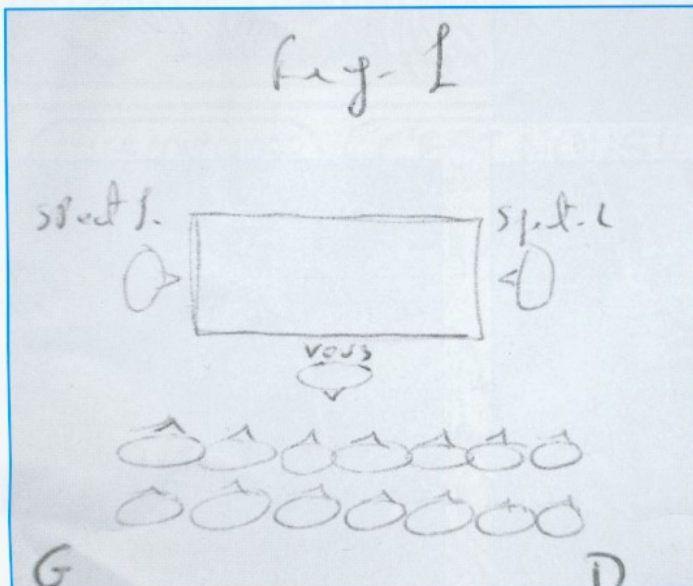 Fig. 1
Spect 1. Spect. 2
vous
G D